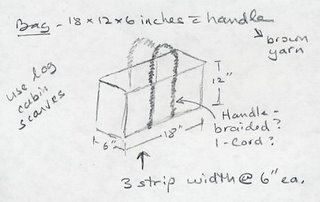 Bag - 18 x 12 x 6 inches = handle
brown
yarn
use log
cabin
scarves
12"
Handle -
braided?
I-Cord?
6"
18"
3 strip width @ 6" ea.